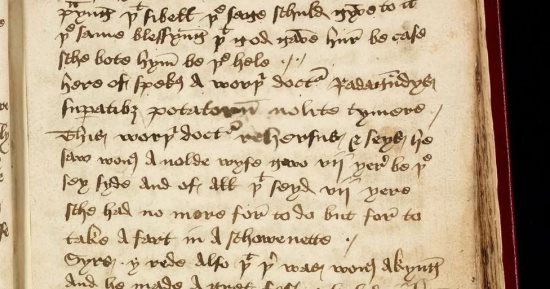 þt sibell þe sage schuld gyve to it
þe same blessyng þt god gave hur be case
sche bote hym be þe hele ·/·
here of spekys A worþi doctr Radamūdys
potatorum nolite tymere ·
This worþi doctr rehersus & seys he
saw wons A nolde wyfe vii yer be þe
sey syde And of all þt seyd vii yere
sche had no more for to do but for to
take a fart in a schowenette ·/
Syrs · y rede Also þt þr was wons akyng
And he made A gret